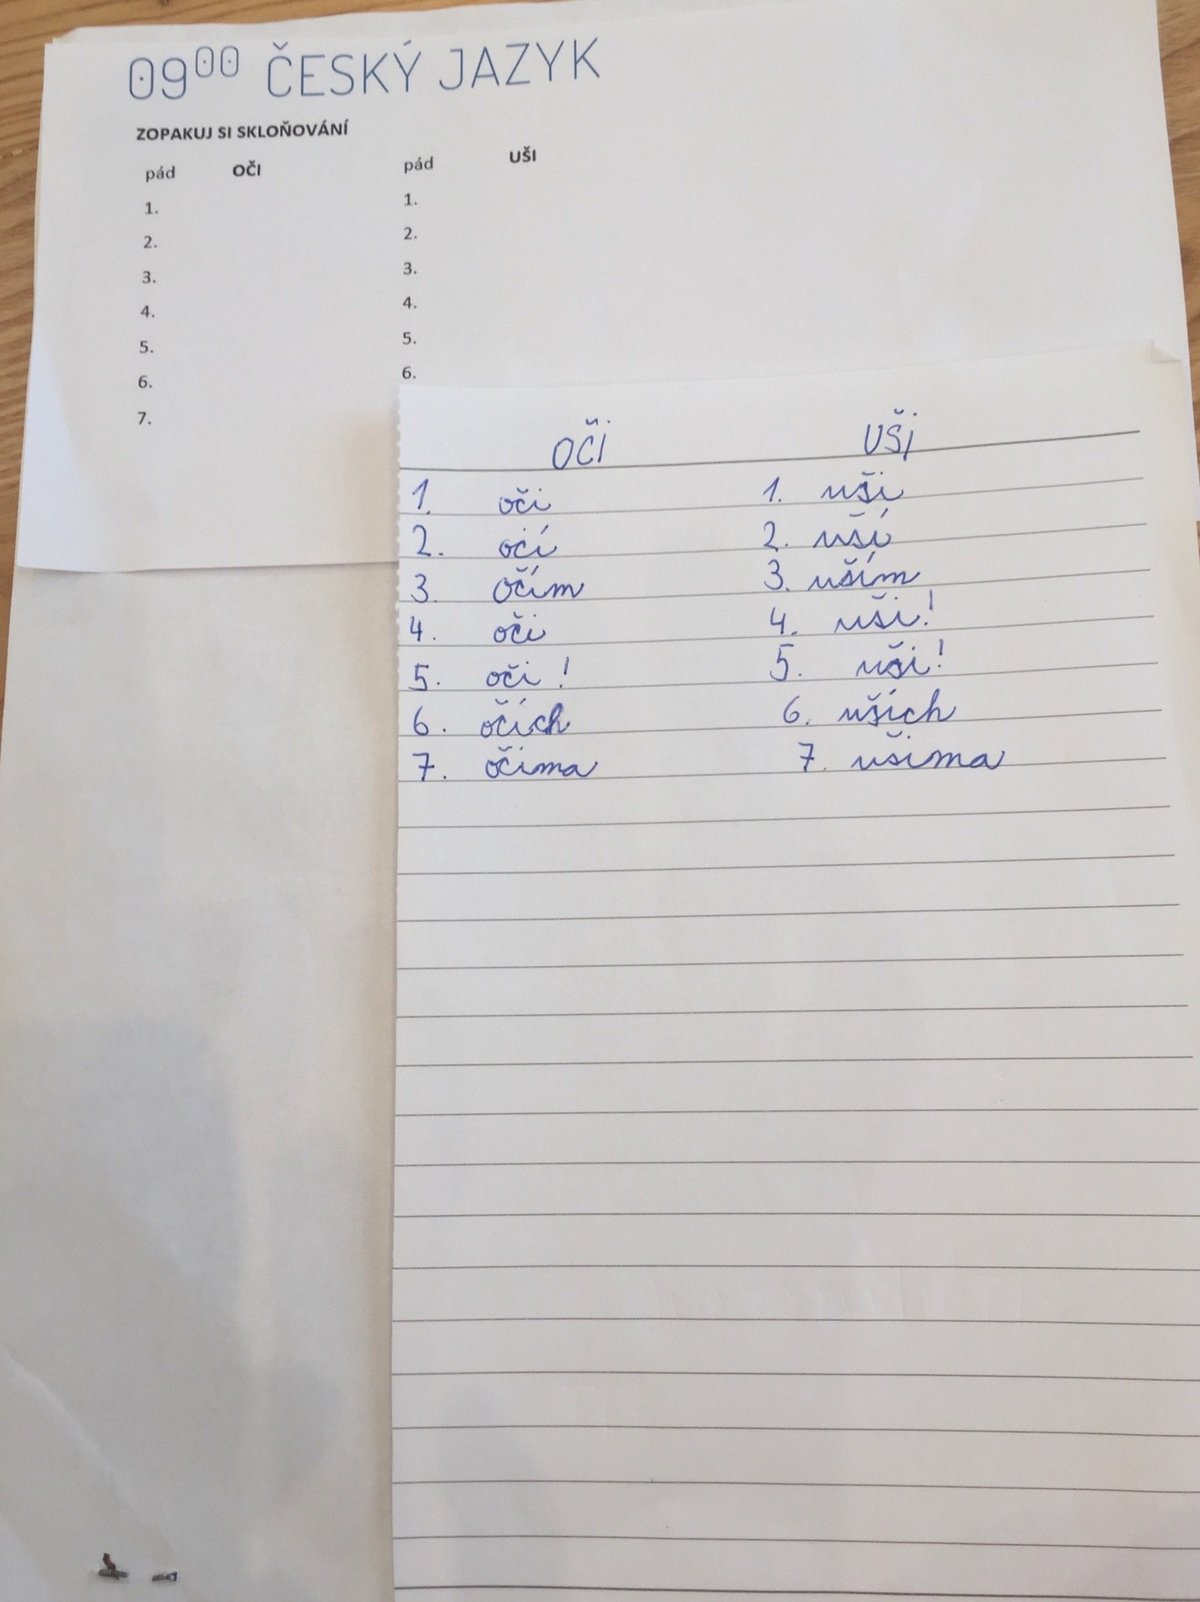 09⁰⁰ ČESKÝ JAZYK
ZOPAKUJ SI SKLOŇOVÁNÍ
pád OČI pád UŠI
1. 1.
2. 2.
3. 3.
4. 4.
5. 5.
6. 6.
7.
OČI UŠI
1. oči 1. uši
2. očí 2. uší
3. očím 3. uším
4. oči 4. uši!
5. oči! 5. uši!
6. očích 6. uších
7. očima 7. ušima